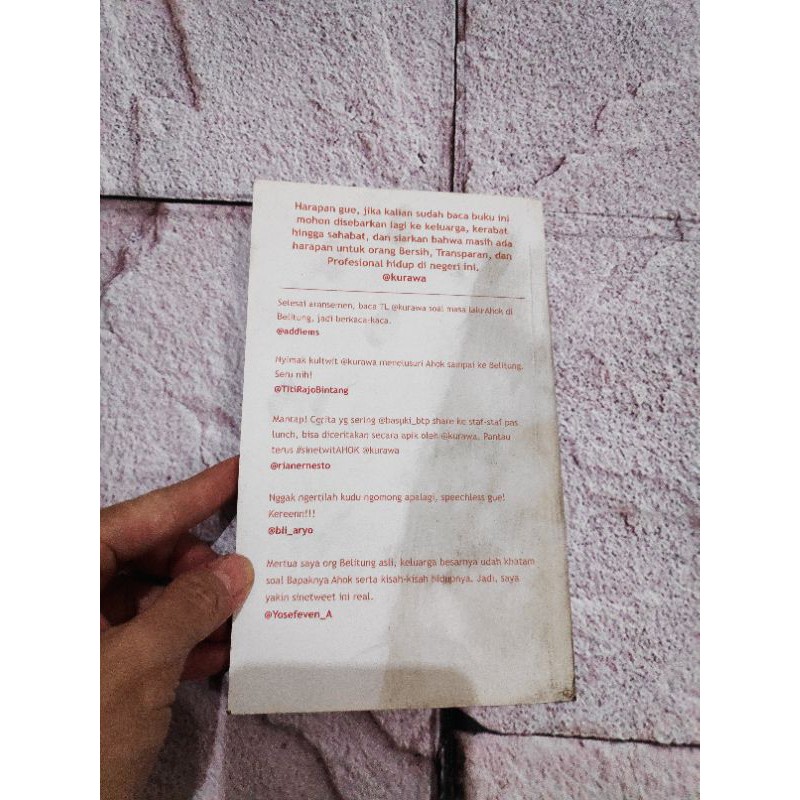 Harapan gue, jika kalian sudah baca buku ini
mohon disebarkan lagi ke keluarga, kerabat
hingga sahabat, dan siarkan bahwa masih ada
harapan untuk orang Bersih, Transparan, dan
Profesional hidup di negeri ini.
@kurawa
Selesai aransemen, baca TL @kurawa soal masa lalu Ahok di
Belitung, jadi berkaca-kaca.
@addiems
Nyimak kultwit @kurawa menelusuri Ahok sampai ke Belitung.
Seru nih!
@TitiRajoBintang
Mantap! Cerita yg sering @basuki_btp share ke staf-staf pas
lunch, bisa diceritakan secara apik oleh @kurawa. Pantau
terus #sinetwitAHOK @kurawa
@rianernesto
Nggak ngertilah kudu ngomong apalagi, speechless gue!
Kereenn!!!
@bli_aryo
Mertua saya org Belitung asli, keluarga besarnya udah khatam
soal Bapaknya Ahok serta kisah-kisah hidupnya. Jadi, saya
yakin sinetweet ini real.
@Yosefeven_A